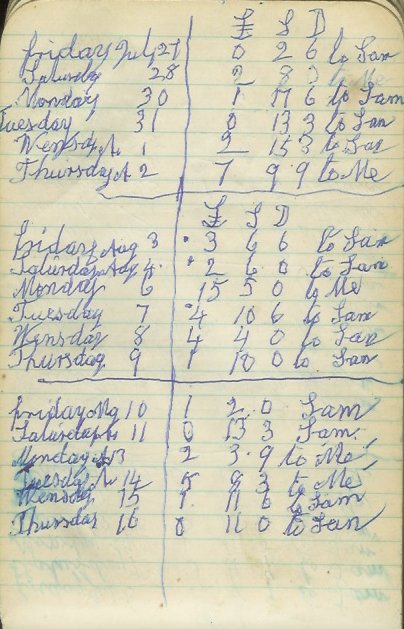 £ S D
friday July 27 0 2 6 to Sam
Saturday 28 2 8 3 to Me
Monday 30 1 17 6 to Sam
Tuesday 31 0 13 3 to Sam
Wensday A 1 2 15 3 to Sam
Thursday A 2 7 9 9 to Me
£ S D
friday Aug 3 3 6 6 to Sam
Saturday Aug 4 2 6 0 to Sam
Monday 6 15 5 0 to Me
Tuesday 7 4 10 6 to Sam
Wensday 8 4 4 0 to Sam
Thursday 9 1 10 0 to Sam
friday 10 1 2 0 Sam
Saturday 11 0 13 3 Sam
Monday A 13 2 3 9 to Me
Tuesday A 14 5 8 3 to Me
Wensday 15 1 11 6 to Sam
Thursday 16 0 11 0 to Sam